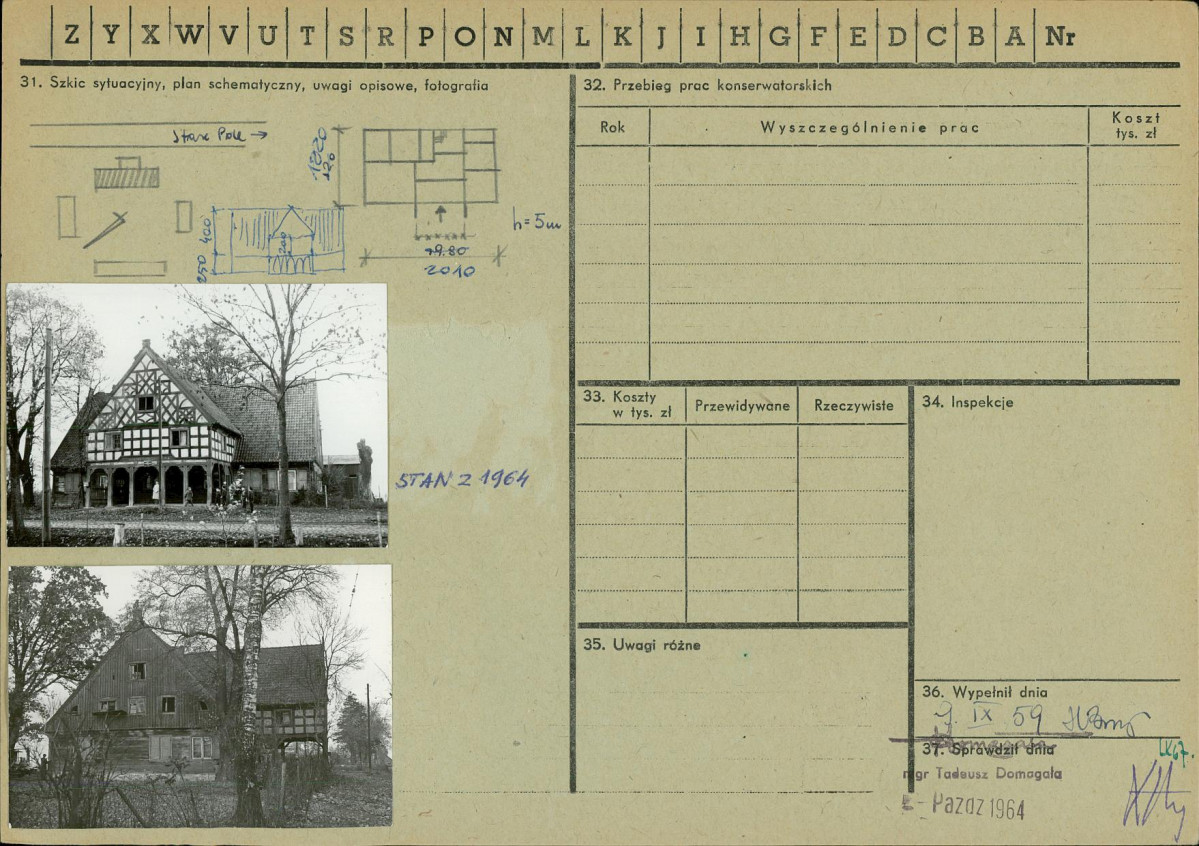 Z Y X W V U T S R P O N M L K J I H G F E D C B A Nr
31. Szkic sytuacyjny, plan schematyczny, uwagi opisowe, fotografia
Stare Pole →
1820
120
h=5m
400
200
250
19.80
2010
STAN Z 1964
32. Przebieg prac konserwatorskich
Rok
Wyszczególnienie prac
Koszt
tys. zł
33. Koszty
w tys. zł
Przewidywane
Rzeczywiste
34. Inspekcje
35. Uwagi różne
36. Wypełnił dnia
IX 59
37. Sprawdził dnia
mgr Tadeusz Domagała
PAZDZ 1964